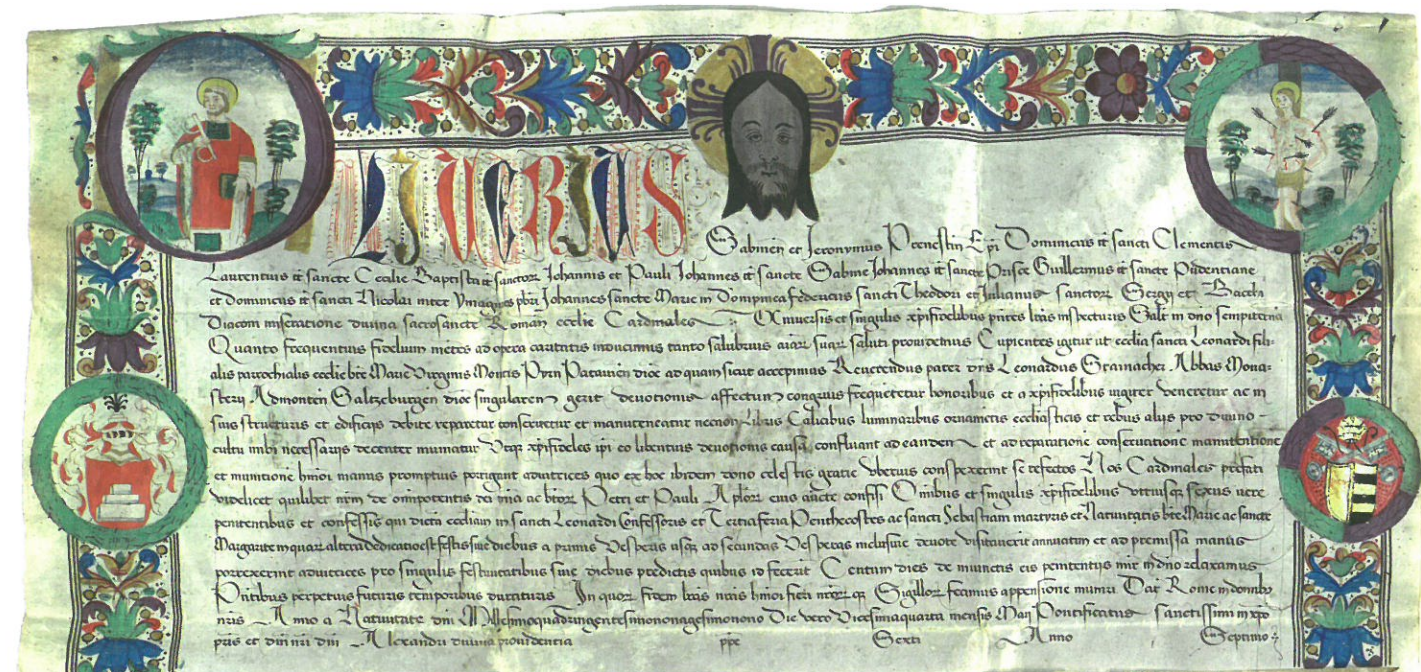 OLIVERIUS
Sabinen et Jeronymus Prenestin Epi Dominicus tt sancti Clementis
Laurentius tt sancte Cecilie Baptista tt sanctorz Johannis et Pauli Johannes tt sancte Sabine Johannes tt sancte Prisce Guillermus tt sancte Pudentiane
et Dominicus tt sancti Nicolai inter Ymagines pbri Johannes sancte Marie in Dompnica federicus sancti Theodori et Julianus sanctorz Sergij et Bacchi
Diaconi miseratione divina sacrosancte Roman ecclie Cardinales Universis et singulis xpifidelibus pntes lras inspecturis Salt in dno sempiterna
Quanto frequentius fidelium mētes ad opera caritatis inducimus tanto salubrius aiarz suarz saluti providemus Cupientes igitur ut ecclia sancti Leonardi fili-
alis parrochialis ecclie bte Marie Virginis Montis Pyrn Patavien dioc ad quam sicut accepimus Reverendus pater dns Leonardus Abbas Mona-
sterij Admonten Saltzeburgen dioc singularem gerit devotionis affectum congruis frequētetur honoribus et a xpifidelibus iugiter veneretur ac in
suis structuris et edificijs debite reparetur conservetur et manuteneatur necnon Libris Calicibus luminaribus ornamētis ecclīasticis et rebus alijs pro divino
cultu inibi necessarijs decenter muniatur Utqz xpifideles ipi eo libentius devotionis causa confluant ad eandem et ad reparatione conservatione manutentione
et munitione hmoi manus promptius porrigant adiutrices quo ex hoc ibidem dono celestis gratie uberius conspexerint se refectos Nos Cardinales prefati
videlicet quilibet nrm de omipotentis dei mia ac btorz Petri et Pauli Aplorz eius aucte confisi Omibus et singulis xpifidelibus utriusqz sexus vere
penitentibus et confessis qui dictā eccliam in sancti Leonardi Confessoris et Tertia feria Penthecostes ac sancti Sebastiani martyris et Nativitatis bte Marie ac sancte
Margarite in quarz altera Dedicatio est festis sive diebus a primis Vesperis usqz ad secundas Vesperas inclusive devote visitaverit annuatim et ad premissa manus
porrexerint adiutrices pro singulis festivitatibus sive diebus predictis quibus id fecerit Centum dies de iniunctis eis penitentijs mir in dno relaxamus
Pntibus perpetuis futuris temporibus duraturis In quorz fidem lras nras hmoi fieri nrorzqz Sigillorz fecimus appensione muniri Dat Rome in domibz
nris Anno a Nativitate dni Millesimoquadringentesimononagesimonono Die vero Vicesimaquarta mensis Maij Pontificatus sanctissimi in xpo
pris et dni nri dni Alexandri divina providentia ppe Sexti Anno Septimo